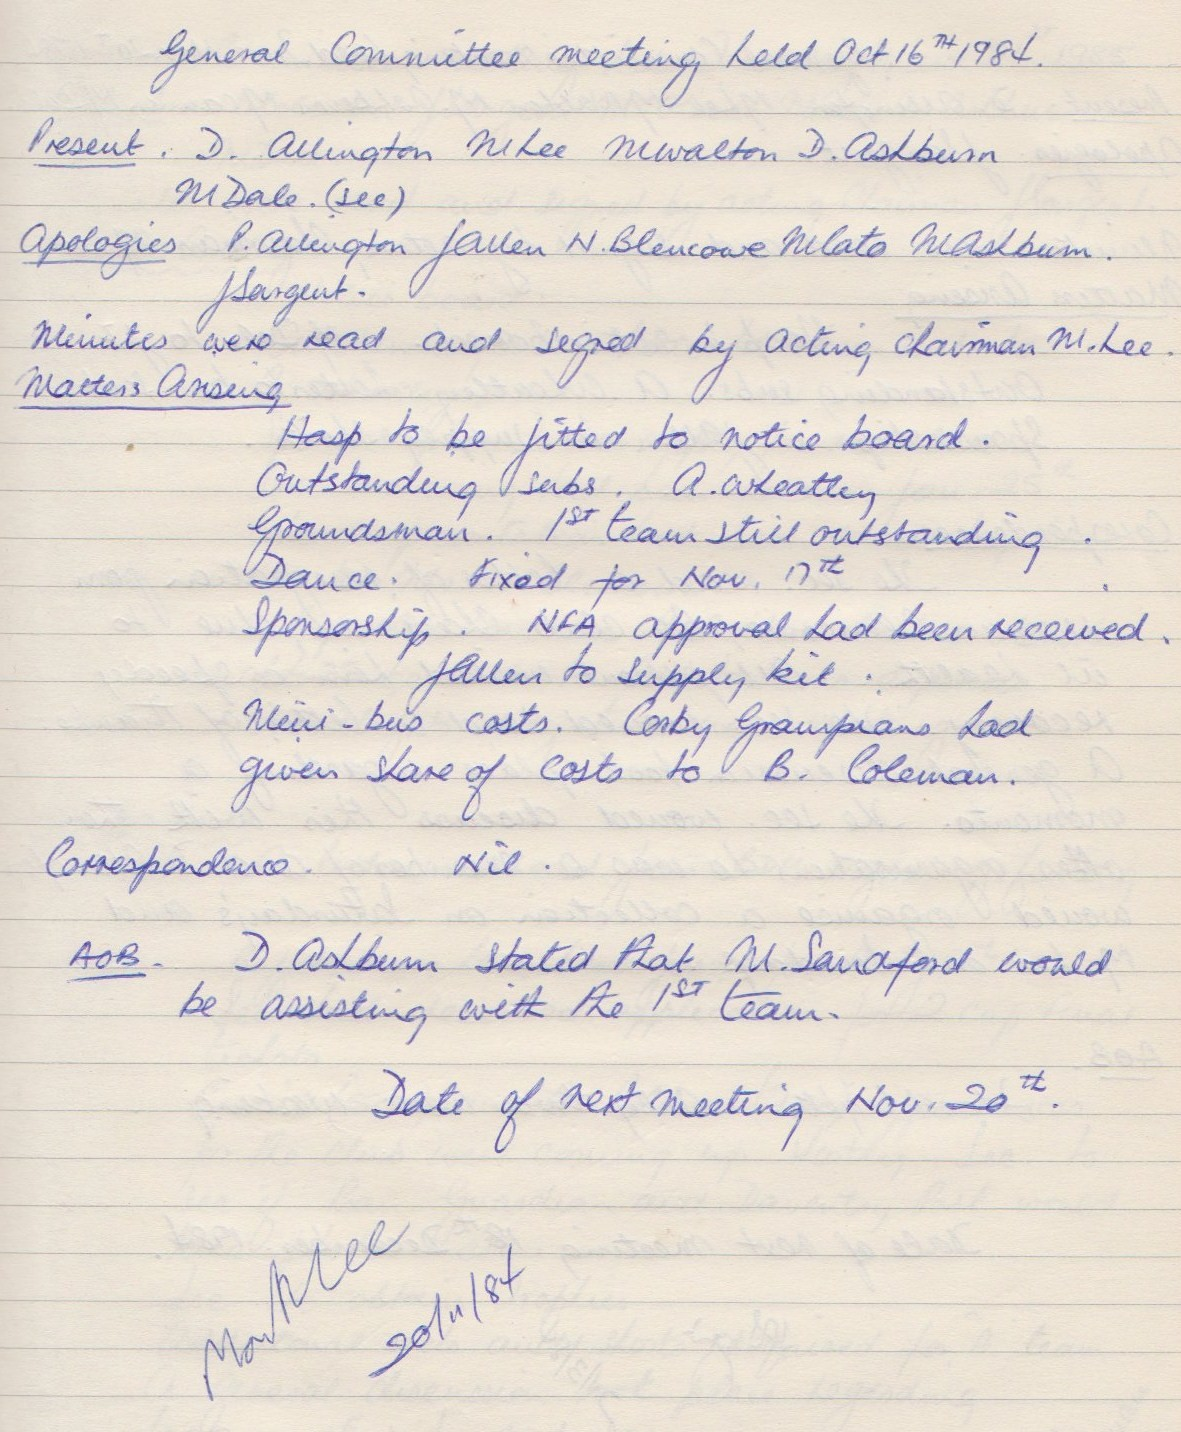 General Committee meeting held Oct 16TH 1984.
Present. D. Allington M Lee M Walton D. Ashburn
M Dale. (sec)
Apologies P. Allington J Allen N. Blencowe M Cato M Ashburn.
J Sargent.
Minutes were read and signed by acting chairman M. Lee.
Matters Arising
Hasp to be fitted to notice board.
Outstanding subs. A. Wheatley
Groundsman. 1ST team still outstanding.
Dance. Fixed for Nov. 17th
Sponsorship. NFA approval had been received.
J Allen to supply kit.
Mini-bus costs. Corby Grampians had
given share of costs to B. Coleman.
Correspondence. Nil.
AOB. D. Ashburn stated that M. Sandford would
be assisting with the 1ST team.
Date of next meeting Nov. 20th.
Mark Lee
20/11/84